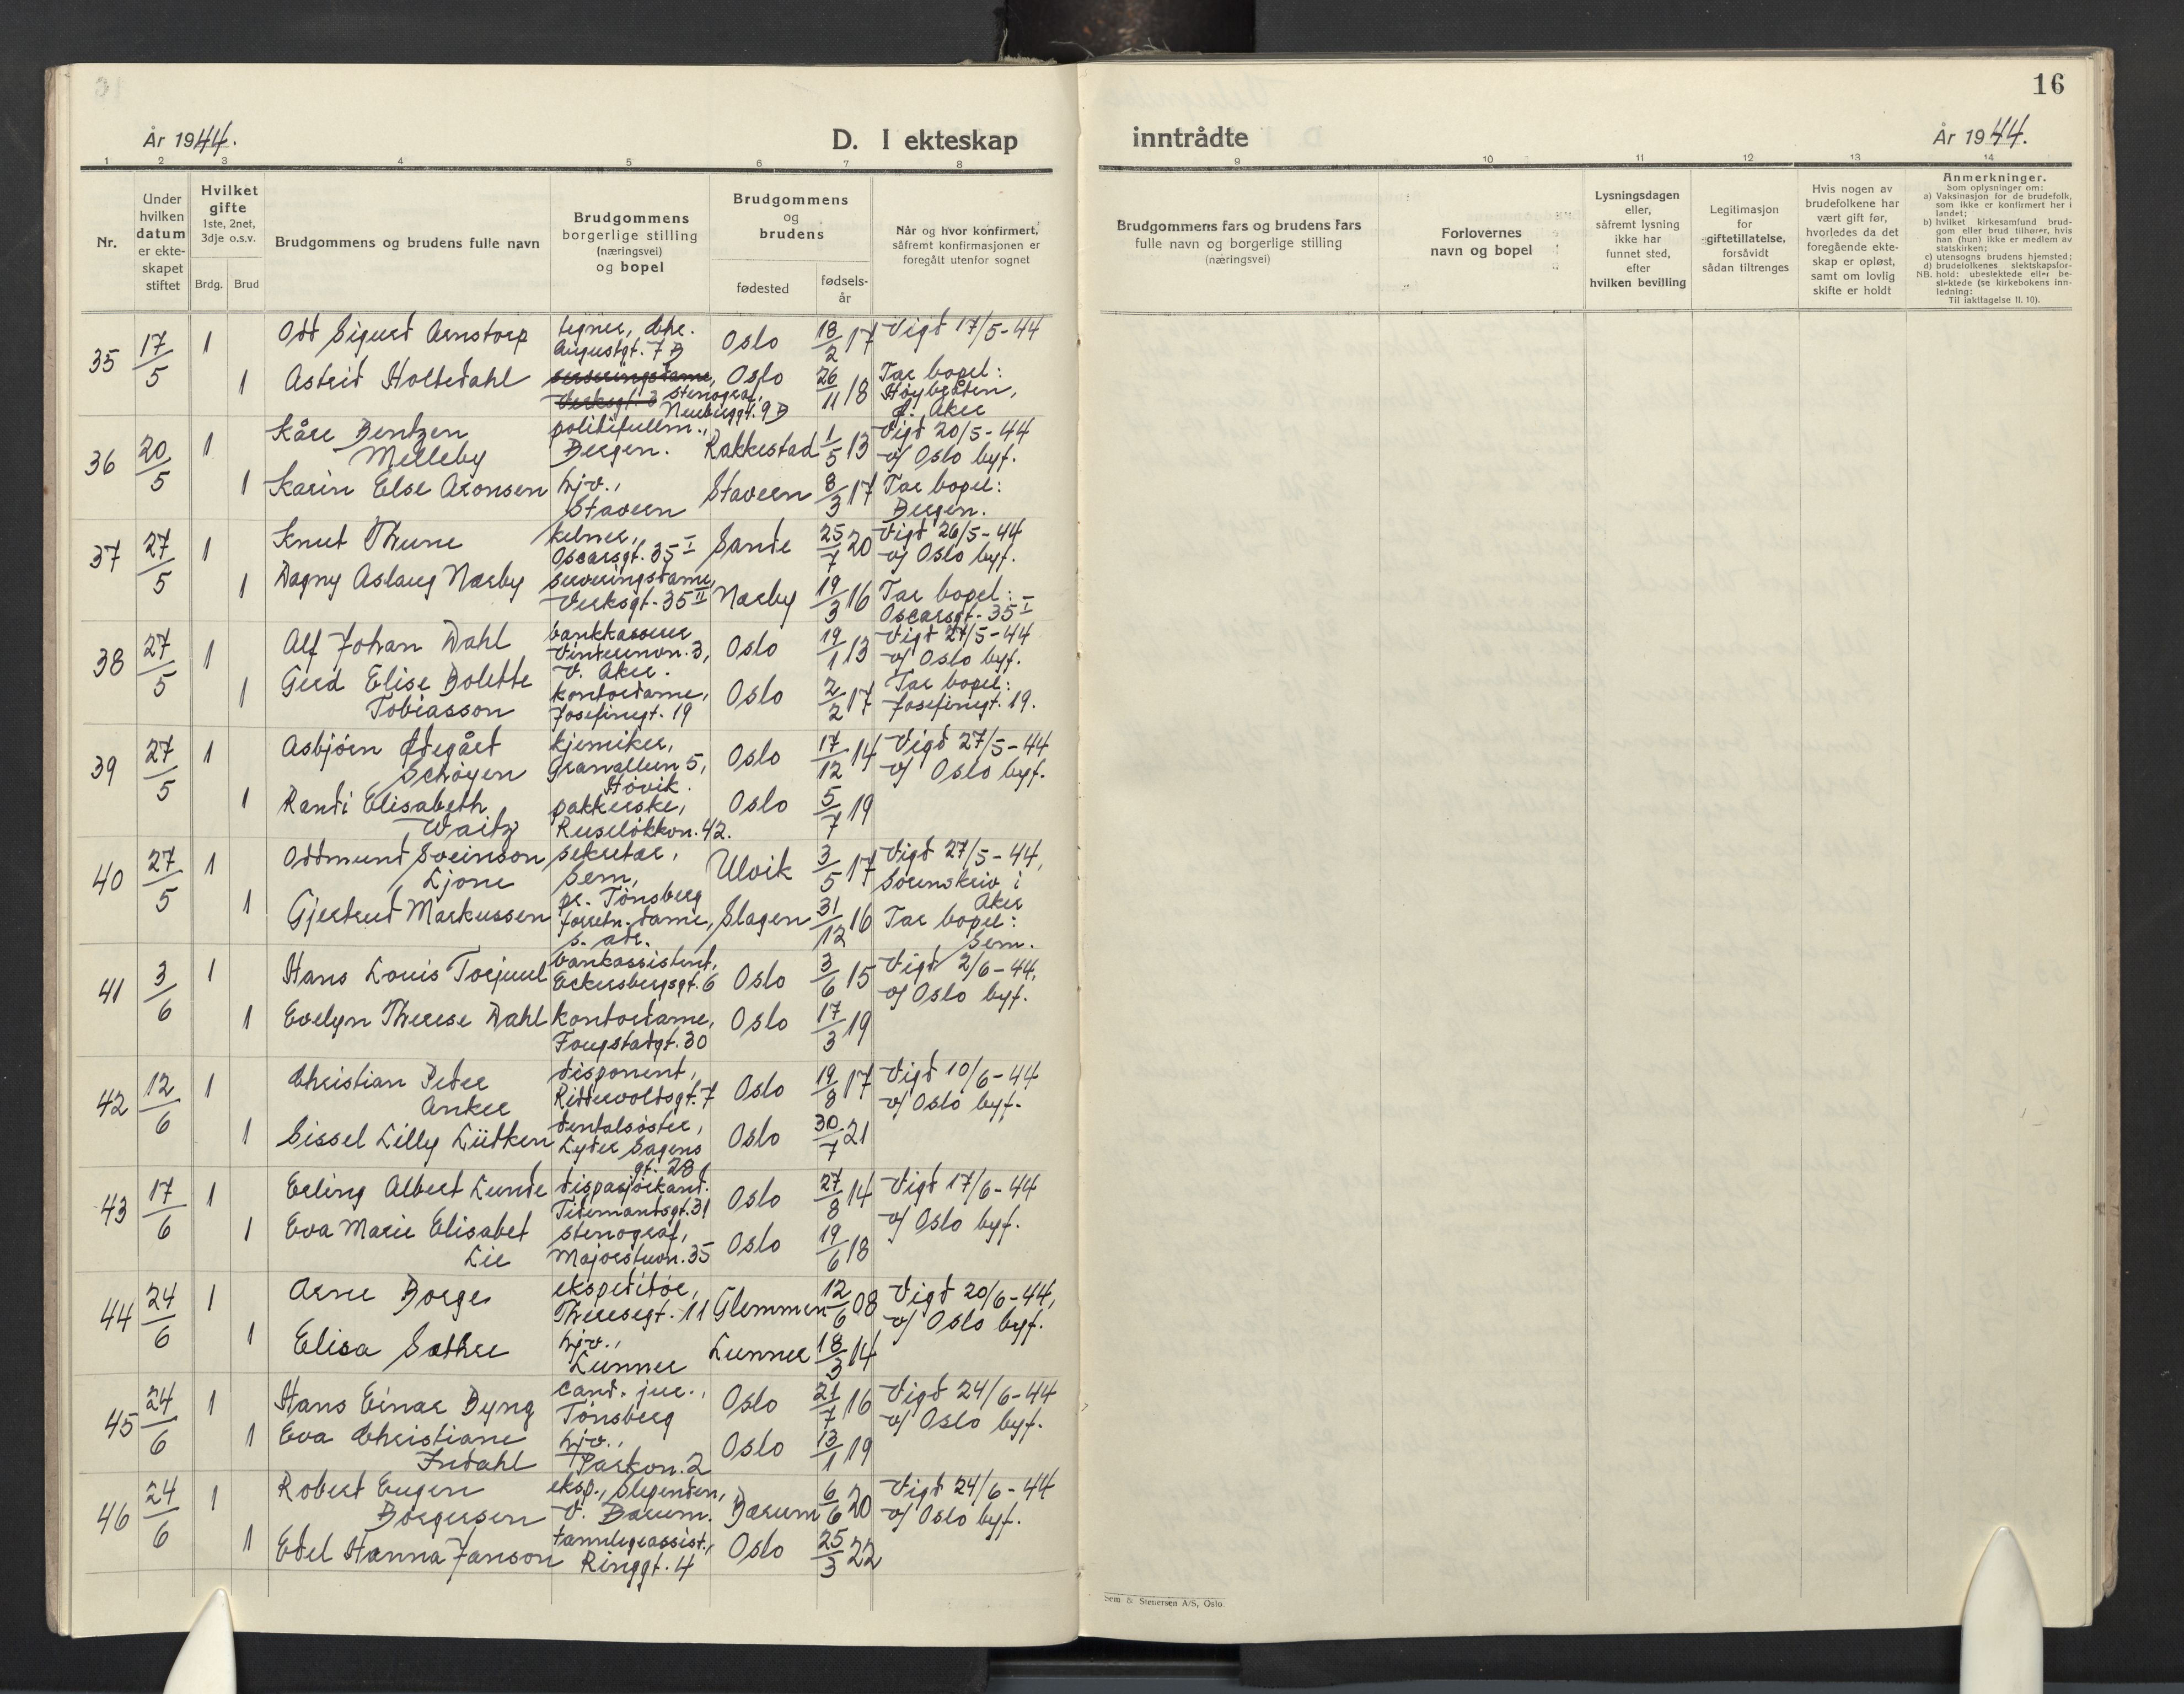 16
År 1944.
D. I ekteskap
inntrådte
År 1944.
1 2 3 4 5 6 7 8 9 10 11 12 13 14
Nr.
Under
hvilken
datum
er ekte-
skapet
stiftet
Hvilket
gifte
1ste, 2net,
3dje o.s.v.
Brdg. Brud
Brudgommens og brudens fulle navn
Brudgommens
borgerlige stilling
(næringsvei)
og bopel
Brudgommens
og
brudens
fødested
fødsels-
år
Når og hvor konfirmert,
såfremt konfirmasjonen er
foregått utenfor sognet
Brudgommens fars og brudens fars
fulle navn og borgerlige stilling
(næringsvei)
Forlovernes
navn og bopel
Lysningsdagen
eller,
såfremt lysning
ikke har
funnet sted,
efter
hvilken bevilling
Legitimasjon
for
giftetillatelse,
forsåvidt
sådan tiltrenges
Hvis nogen av
brudefolkene har
vært gift før,
hvorledes da det
foregående ekte-
skap er opløst,
samt om lovlig
skifte er holdt
Anmerkninger.
Som oplysninger om:
a) Vaksinasjon for de brudefolk,
som ikke er konfirmert her i
landet;
b) hvilket kirkesamfund brud-
gom eller brud tilhører, hvis
han (hun) ikke er medlem av
statskirken;
c) utensogns brudens hjemsted;
d) brudefolkenes slektskapsfor-
NB. hold: ubeslektede eller be-
slektede (se kirkebokens inn-
ledning:
Til iakttagelse II. 10).
35 17/5 1 Odd Sigurd Arnstorp tegner, Chr. Augustgt. 7 B Oslo 18/2 17 Vigd 17/5-44
1 Astrid Holtedahl serveringsdame, Verksgt. 3 stenograf, Neuberggt. 9 B Oslo 26/11 18 Tar bopel: Høybråten, Ø. Aker
36 20/5 1 Kåre Bentzen Melleby politifullm., Bergen. Rakkestad 1/5 13 Vigd 20/5-44 v/ Oslo byf.
1 Karin Else Aronsen hjv., Stavern Stavern 8/3 17 Tar bopel: Bergen.
37 27/5 1 Knut Thune kelner, Oscarsgt. 35 I Sande 25/7 20 Vigd 26/5-44 v/ Oslo byf.
1 Dagny Aslaug Nærby serveringsdame, Verksgt. 35 II Nærby 19/3 16 Tar bopel: Oscarsgt. 35 I
38 27/5 1 Alf Johan Dahl bankkasserer Vinderenvn. 3, V. Aker. Oslo 19/1 13 Vigd 27/5-44 v/ Oslo byf.
1 Gerd Elise Bolette Tobiasson kontordame, Josefinegt. 19 Oslo 2/2 17 Tar bopel: Josefinegt. 19.
39 27/5 1 Asbjörn Ødegård Schöyen kjemiker, Granalleen 5, Hövik. Oslo 17/12 14 Vigd 27/5-44 v/ Oslo byf.
1 Randi Elisabeth Waitz pakkerske, Ruselökkvn. 42. Oslo 5/7 19
40 27/5 1 Oddmund Sveinson Ljone sekretær, Sem, pr. Tönsberg Ulvik 3/5 17 Vigd 27/5-44, Sorenskriv i Aker
1 Gjertrud Markussen forretn. dame, s. adr. Slagen 31/12 16 Tar bopel: Sem.
41 3/6 1 Hans Louis Torjuul bankassistent, Eckersbergsgt. 6 Oslo 3/6 15 Vigd 2/6-44, v/ Oslo byf.
1 Evelyn Therese Dahl kontordame, Fougstadgt. 30 Oslo 17/3 19
42 12/6 1 Christian Peder Anker disponent, Riddervoldsgt. 7 Oslo 19/8 17 Vigd 10/6-44 v/ Oslo byf.
1 Sissel Lilly Lütken dentalsöster, Lyder Sagens gt. 28 Oslo 30/7 21
43 17/6 1 Erling Albert Lunde dispasjörkand. Tidemandsgt. 31 Oslo 27/8 14 Vigd 17/6-44 v/ Oslo byf.
1 Eva Marie Elisabet Lie stenograf, Majorstuvn. 35 Oslo 19/6 18
44 24/6 1 Arne Borge ekspeditör, Theresegt. 11 Glemmen 12/6 08 Vigd 20/6-44, v/ Oslo byf.
1 Elisa Sæther hjv., Lunner Lunner 18/3 14
45 24/6 1 Hans Einar Byng cand. jur., Tönsberg Oslo 21/7 16 Vigd 24/6-44 v/ Oslo byf.
1 Eva Christiane Indahl hjv., Parkvn. 2 Oslo 13/1 19
46 24/6 1 Robert Eugen Borgersen eksp., Slependen, V. Bærum. Bærum 6/6 20 Vigd 24/6-44 v/ Oslo byf.
1 Edel Hanna Janson tannlegeassist., Ringgt. 4 Oslo 25/3 22
Sem & Stenersen A/S, Oslo.